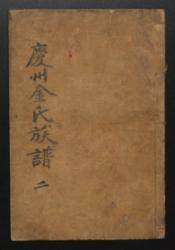 慶州金氏族譜
二